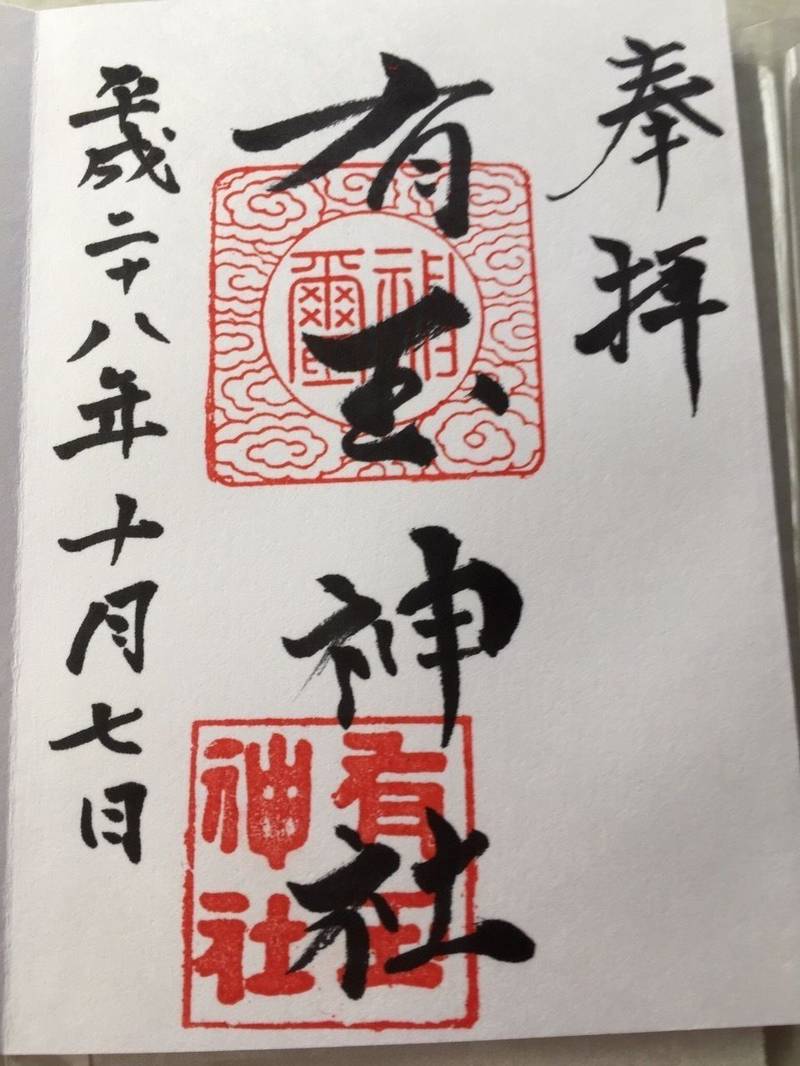 奉拝
有玉神社
平成二十八年十月七日
神璽
有玉
神社